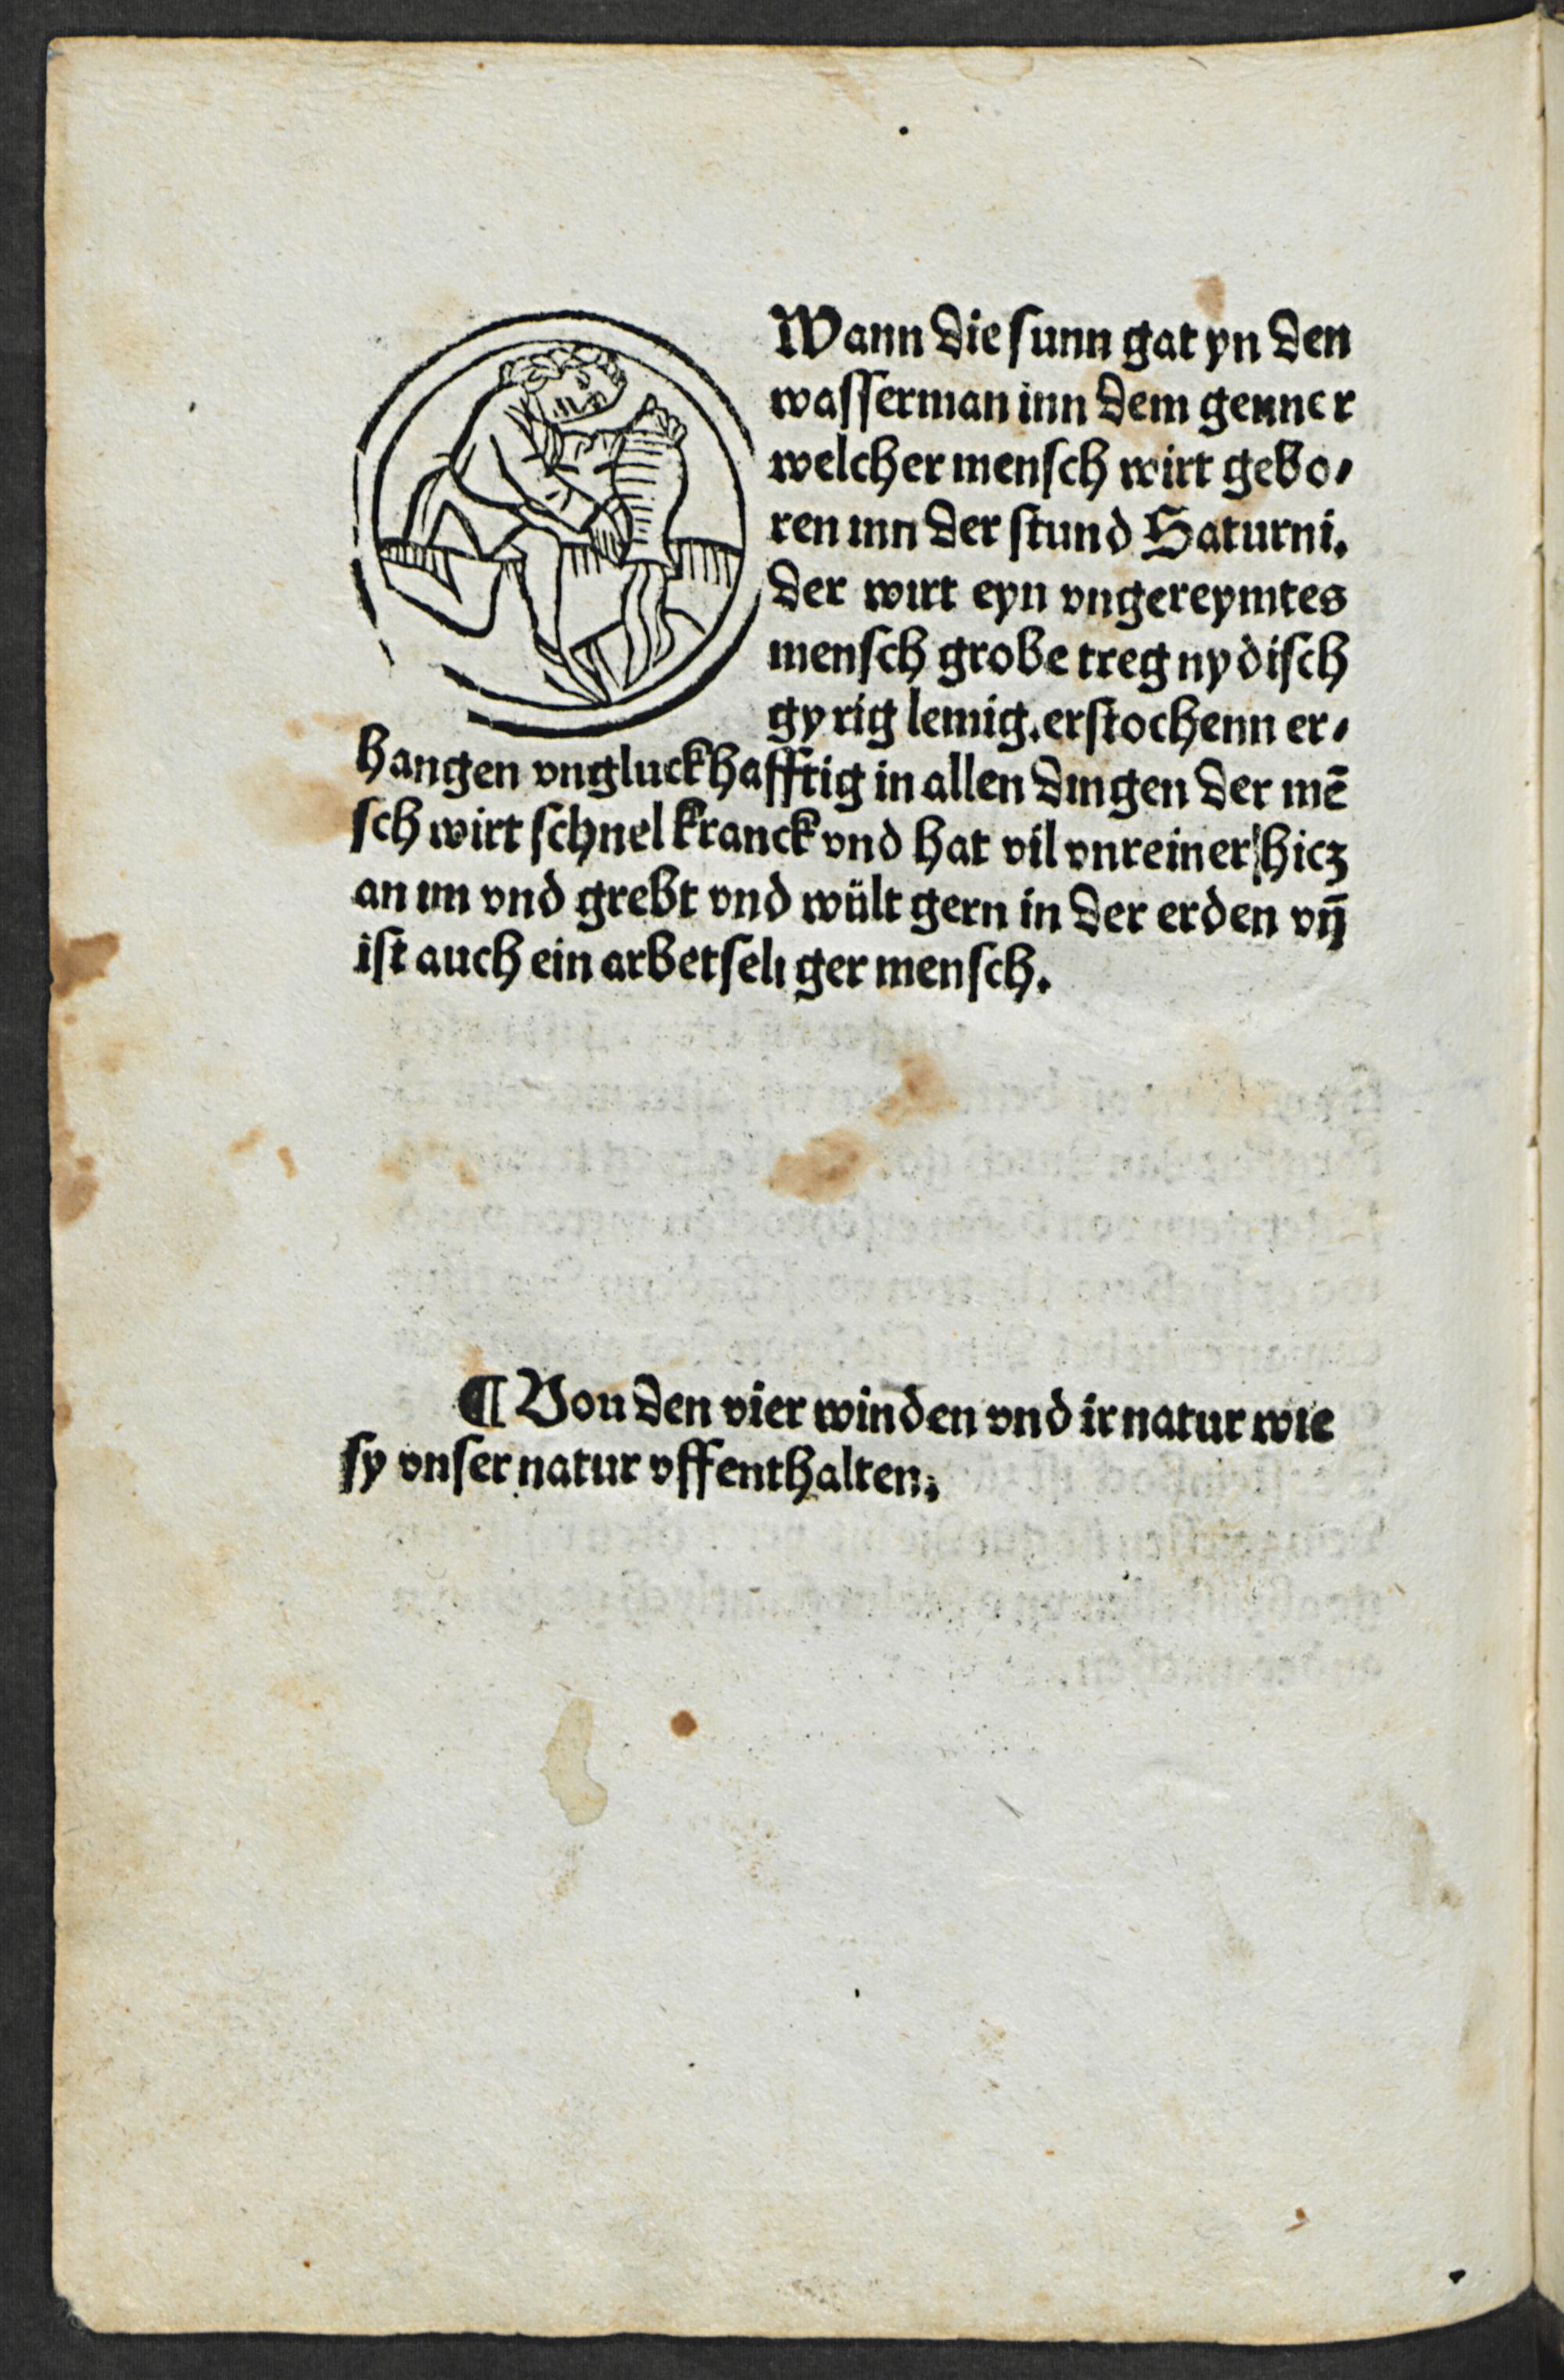 Wann die sunn gat yn den
wasserman inn dem genner
welcher mensch wirt gebo⸗
ren inn der stund Saturni.
der wirt eyn vngereymtes
mensch grobe treg nydisch
gyrig lemig. erstochenn er⸗
hangen vngluckhafftig in allen dingen der mē
sch wirt schnel kranck vnd hat vil vnreiner hicz
an im vnd grebt vnd wült gern in der erden vñ
ist auch ein arbetseliger mensch.
¶ Von den vier winden vnd ir natur wie
sy vnser natur vffenthalten.